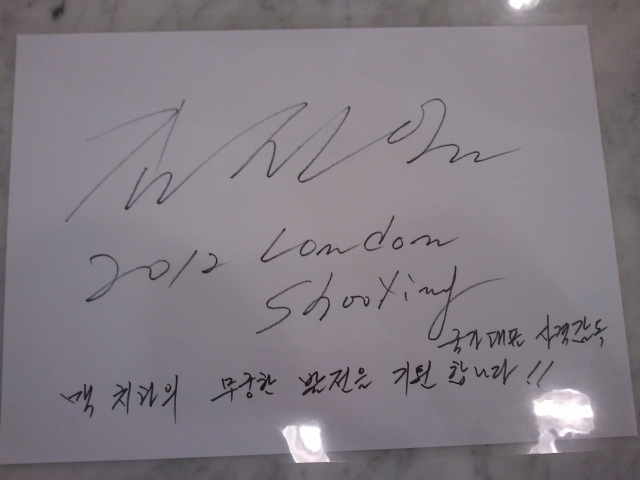 김선일
2012 London
Shooting
국가대표 사격감독
맥 치과의 무궁한 발전을 기원 합니다 !!